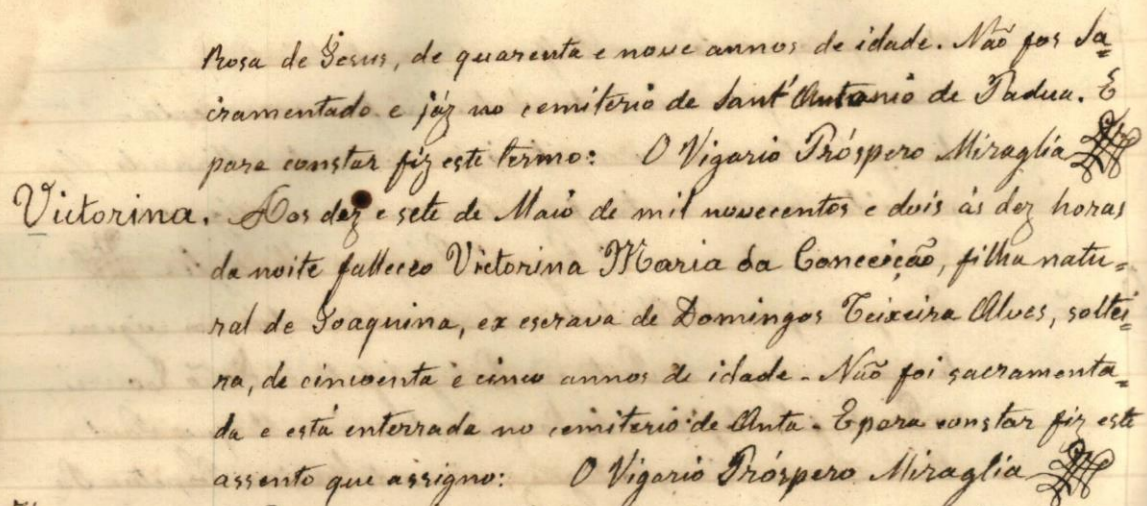 Rosa de Jesus, de quarenta e nove annos de idade. Não foi Sa=
cramentado e jáz no cemiterio de Sant' Antonio de Padua. E
para constar fiz este termo: O Vigario Próspero Miraglia
Victorina. Aos dez e sete de Maio de mil novecentos e dois ás dez horas
da noite falleceo Victorina Maria da Conceição, filha natu=
ral de Joaquina, ex escrava de Domingos Teixeira Alves, soltei=
ra, de cincoenta e cinco annos de idade. Não foi sacramenta=
da e está enterrada no cemiterio de Anta. E para constar fiz este
assento que assigno: O Vigario Próspero Miraglia